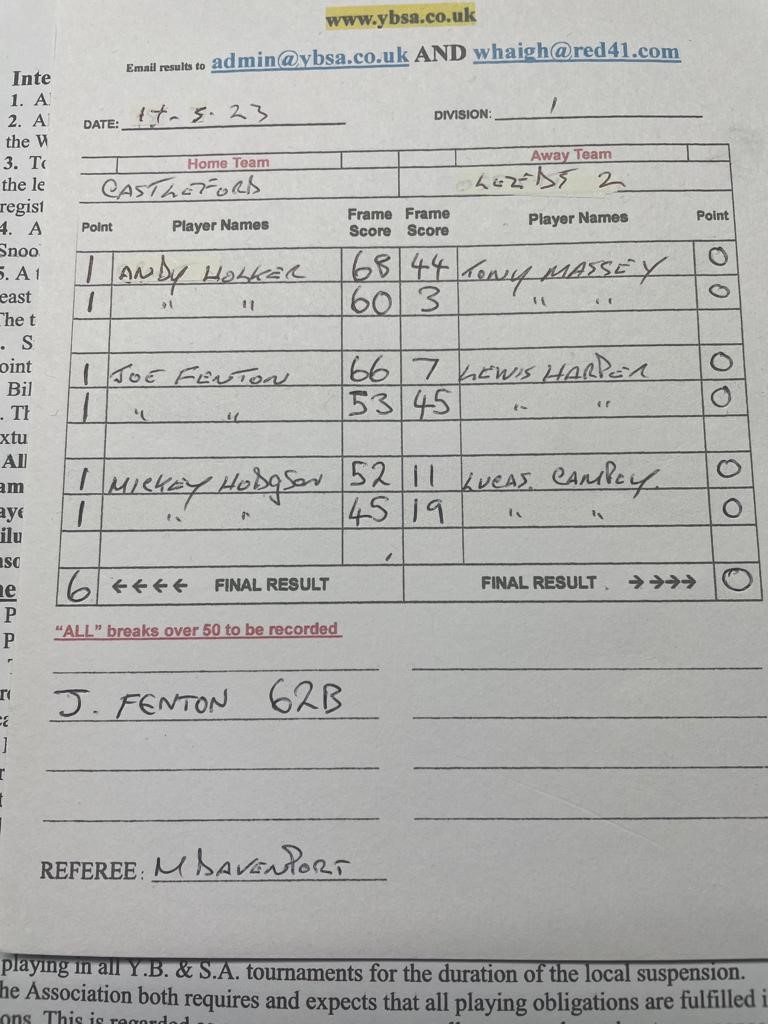 www.ybsa.co.uk
Email results to admin@ybsa.co.uk AND whaigh@red41.com
DATE: 17-5.23 DIVISION: 1
Home Team Away Team
CASTLEFORD LEEDS 2
Point Player Names Frame Score Frame Score Player Names Point
1 ANDY HOLKER 68 44 TONY MASSEY 0
1 " " 60 3 " " 0
1 JOE FENTON 66 7 LEWIS HARPER 0
1 " " 53 45 " " 0
1 MICKEY HODGSON 52 11 LUCAS. CAMPEY. 0
1 " " 45 19 " " 0
6 ←←←← FINAL RESULT FINAL RESULT . →→→→ 0
"ALL" breaks over 50 to be recorded
J. FENTON 62B
REFEREE: M DAVENPORT
Inte
1. A
2. A
the W
3. To
the le
regist
4. A
Snoo
5. A
east
The t
. S
oint
Bil
. Th
xtu
All
am
aye
ilu
P
P
playing in all Y.B. & S.A. tournaments for the duration of the local suspension.
he Association both requires and expects that all playing obligations are fulfilled i
ons. This is regarded